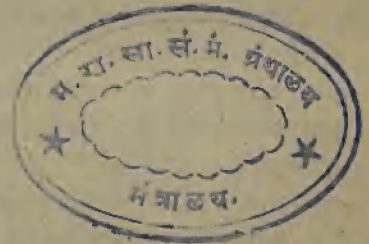 म. रा. सा. सं. मं. ग्रंथालय
मंत्रालय.